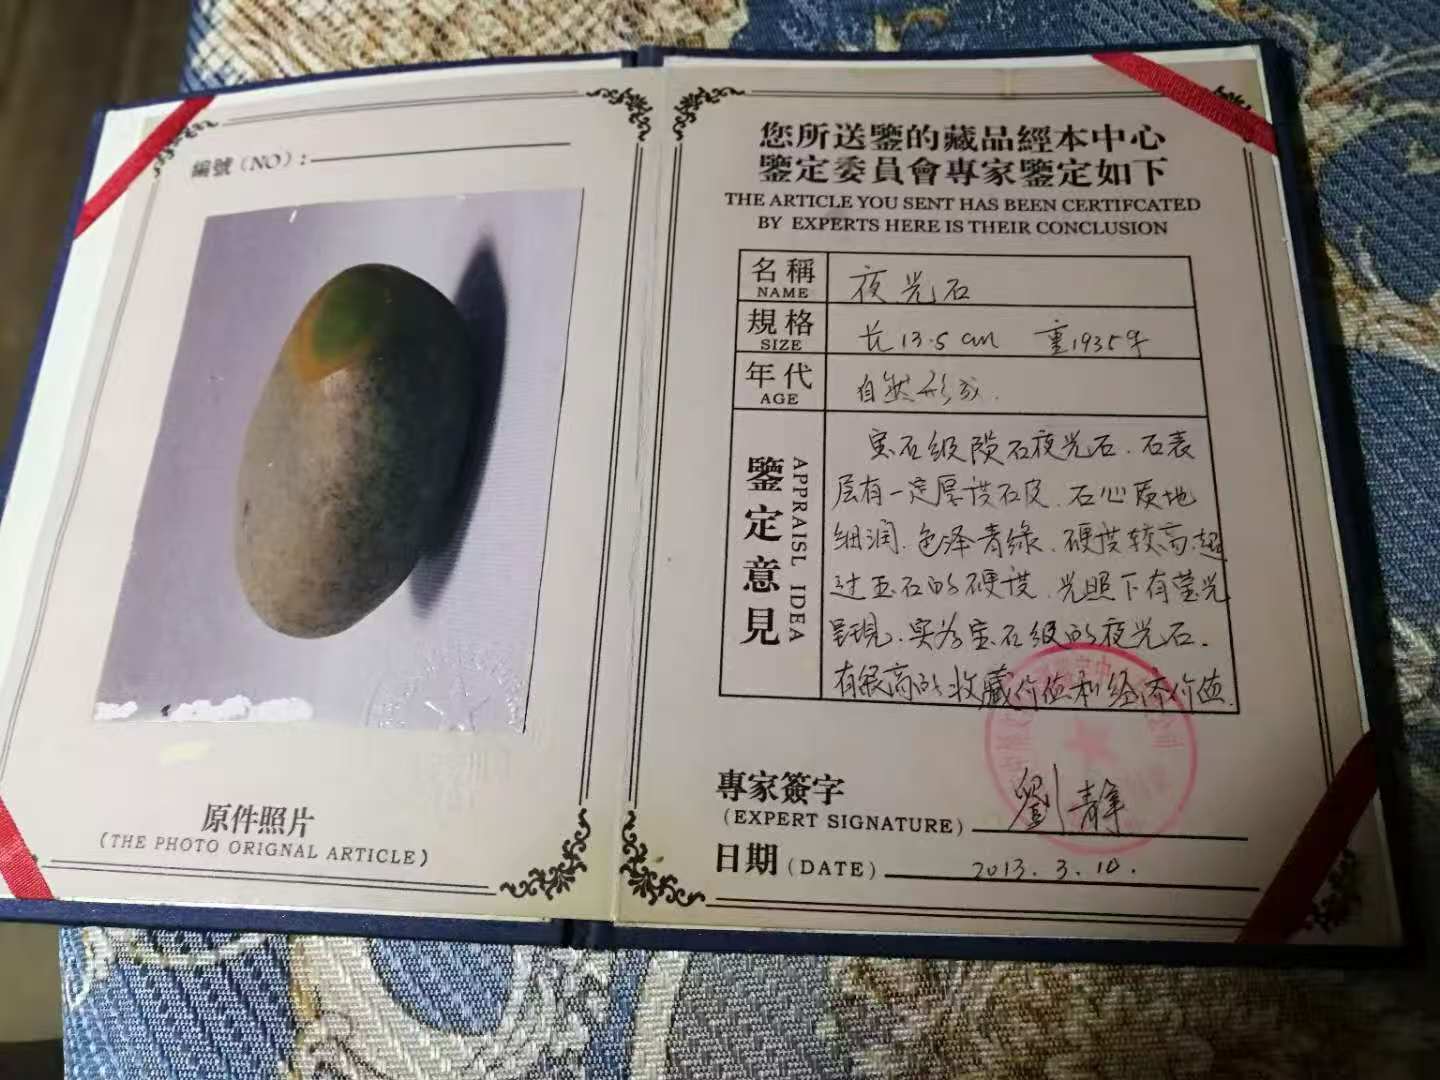 編號(NO)：
原件照片
(THE PHOTO ORIGNAL ARTICLE)
您所送鑒的藏品經本中心
鑒定委員會專家鑒定如下
THE ARTICLE YOU SENT HAS BEEN CERTIFCATED
BY EXPERTS HERE IS THEIR CONCLUSION
名稱 夜光石
NAME
規格 长13.5cm 重1935克
SIZE
年代 自然形成.
AGE
鑒定意見
APPRAISL IDEA
宝石级陨石夜光石.石表
层有一定厚度石皮.石心质地
细润.色泽青绿.硬度较高.超
过玉石的硬度.光照下有莹光
呈現.实为宝石级的夜光石.
有很高的收藏价值和经济价值.
專家簽字 劉靜
(EXPERT SIGNATURE)
日期(DATE) 2013.3.10.